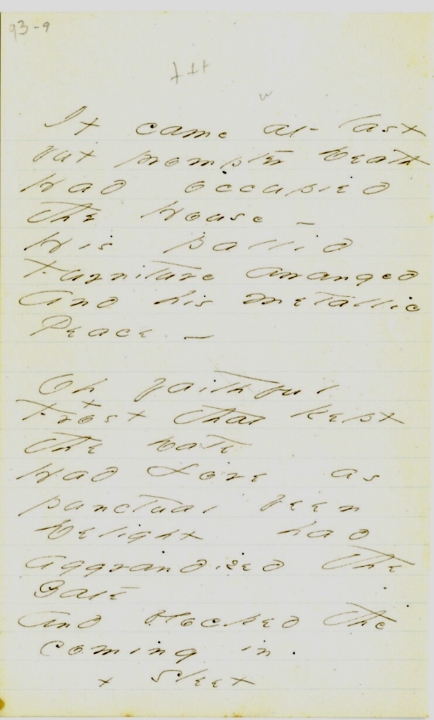 93-9
+++
It came at last
but prompter Death
Had occupied
the House -
His pallid
Furniture arranged
And his metallic
Peace -
Oh faithful
+ Frost that kept
the Date
Had Love as
punctual been
Delight had
aggrandized the
Gate
And blocked the
coming in.
+ Sleet